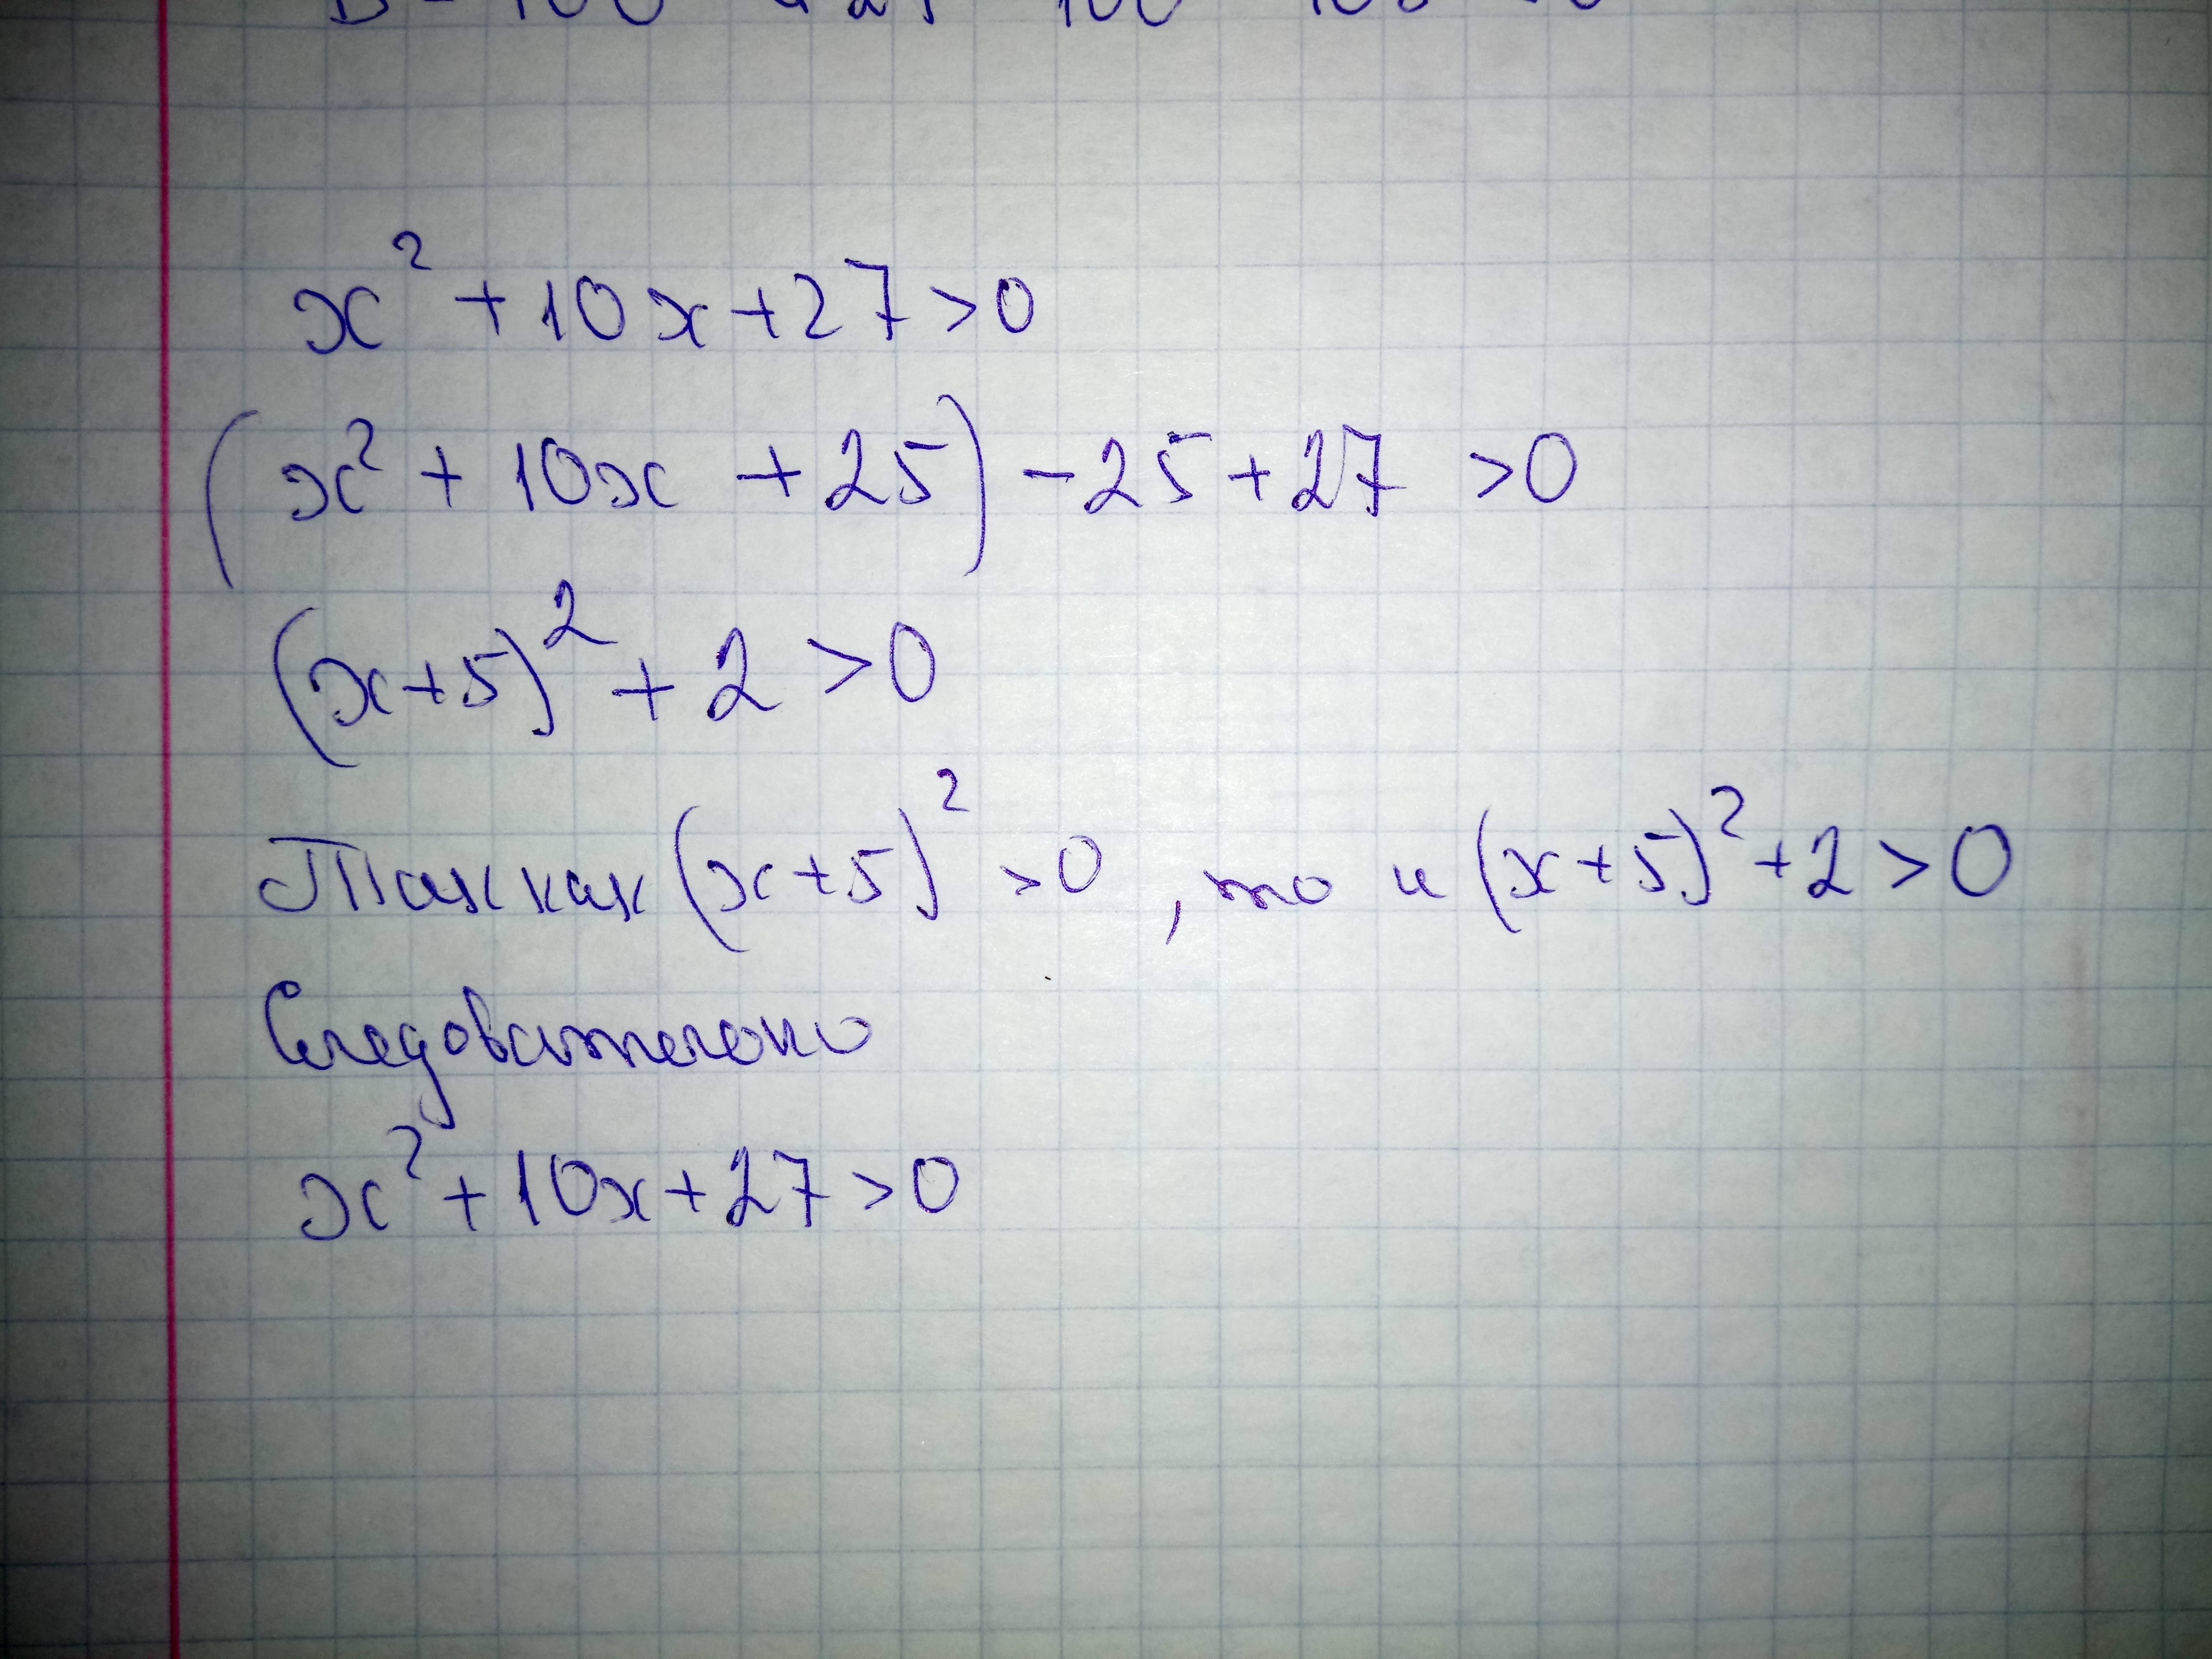 x² + 10x + 27 > 0
(x² + 10x + 25) - 25 + 27 > 0
(x+5)² + 2 > 0
Так как (x+5)² > 0, то и (x+5)² + 2 > 0
Следовательно
x² + 10x + 27 > 0